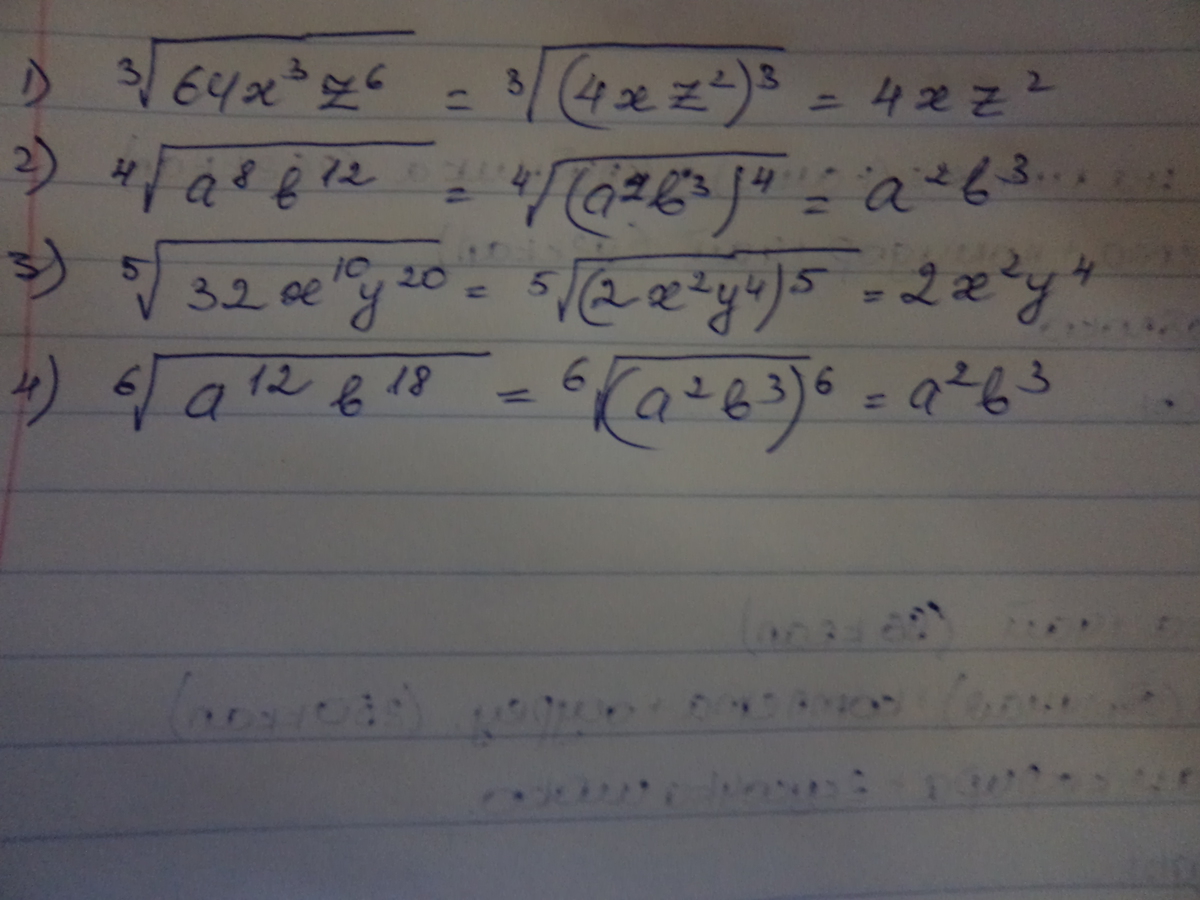 1) ∛(64x³z⁶) = ∛((4xz²)³) = 4xz²
2) ∜(a⁸b¹²) = ∜((a²b³)⁴) = a²b³
3) ⁵√(32x¹⁰y²⁰) = ⁵√((2x²y⁴)⁵) = 2x²y⁴
4) ⁶√(a¹²b¹⁸) = ⁶√((a²b³)⁶) = a²b³